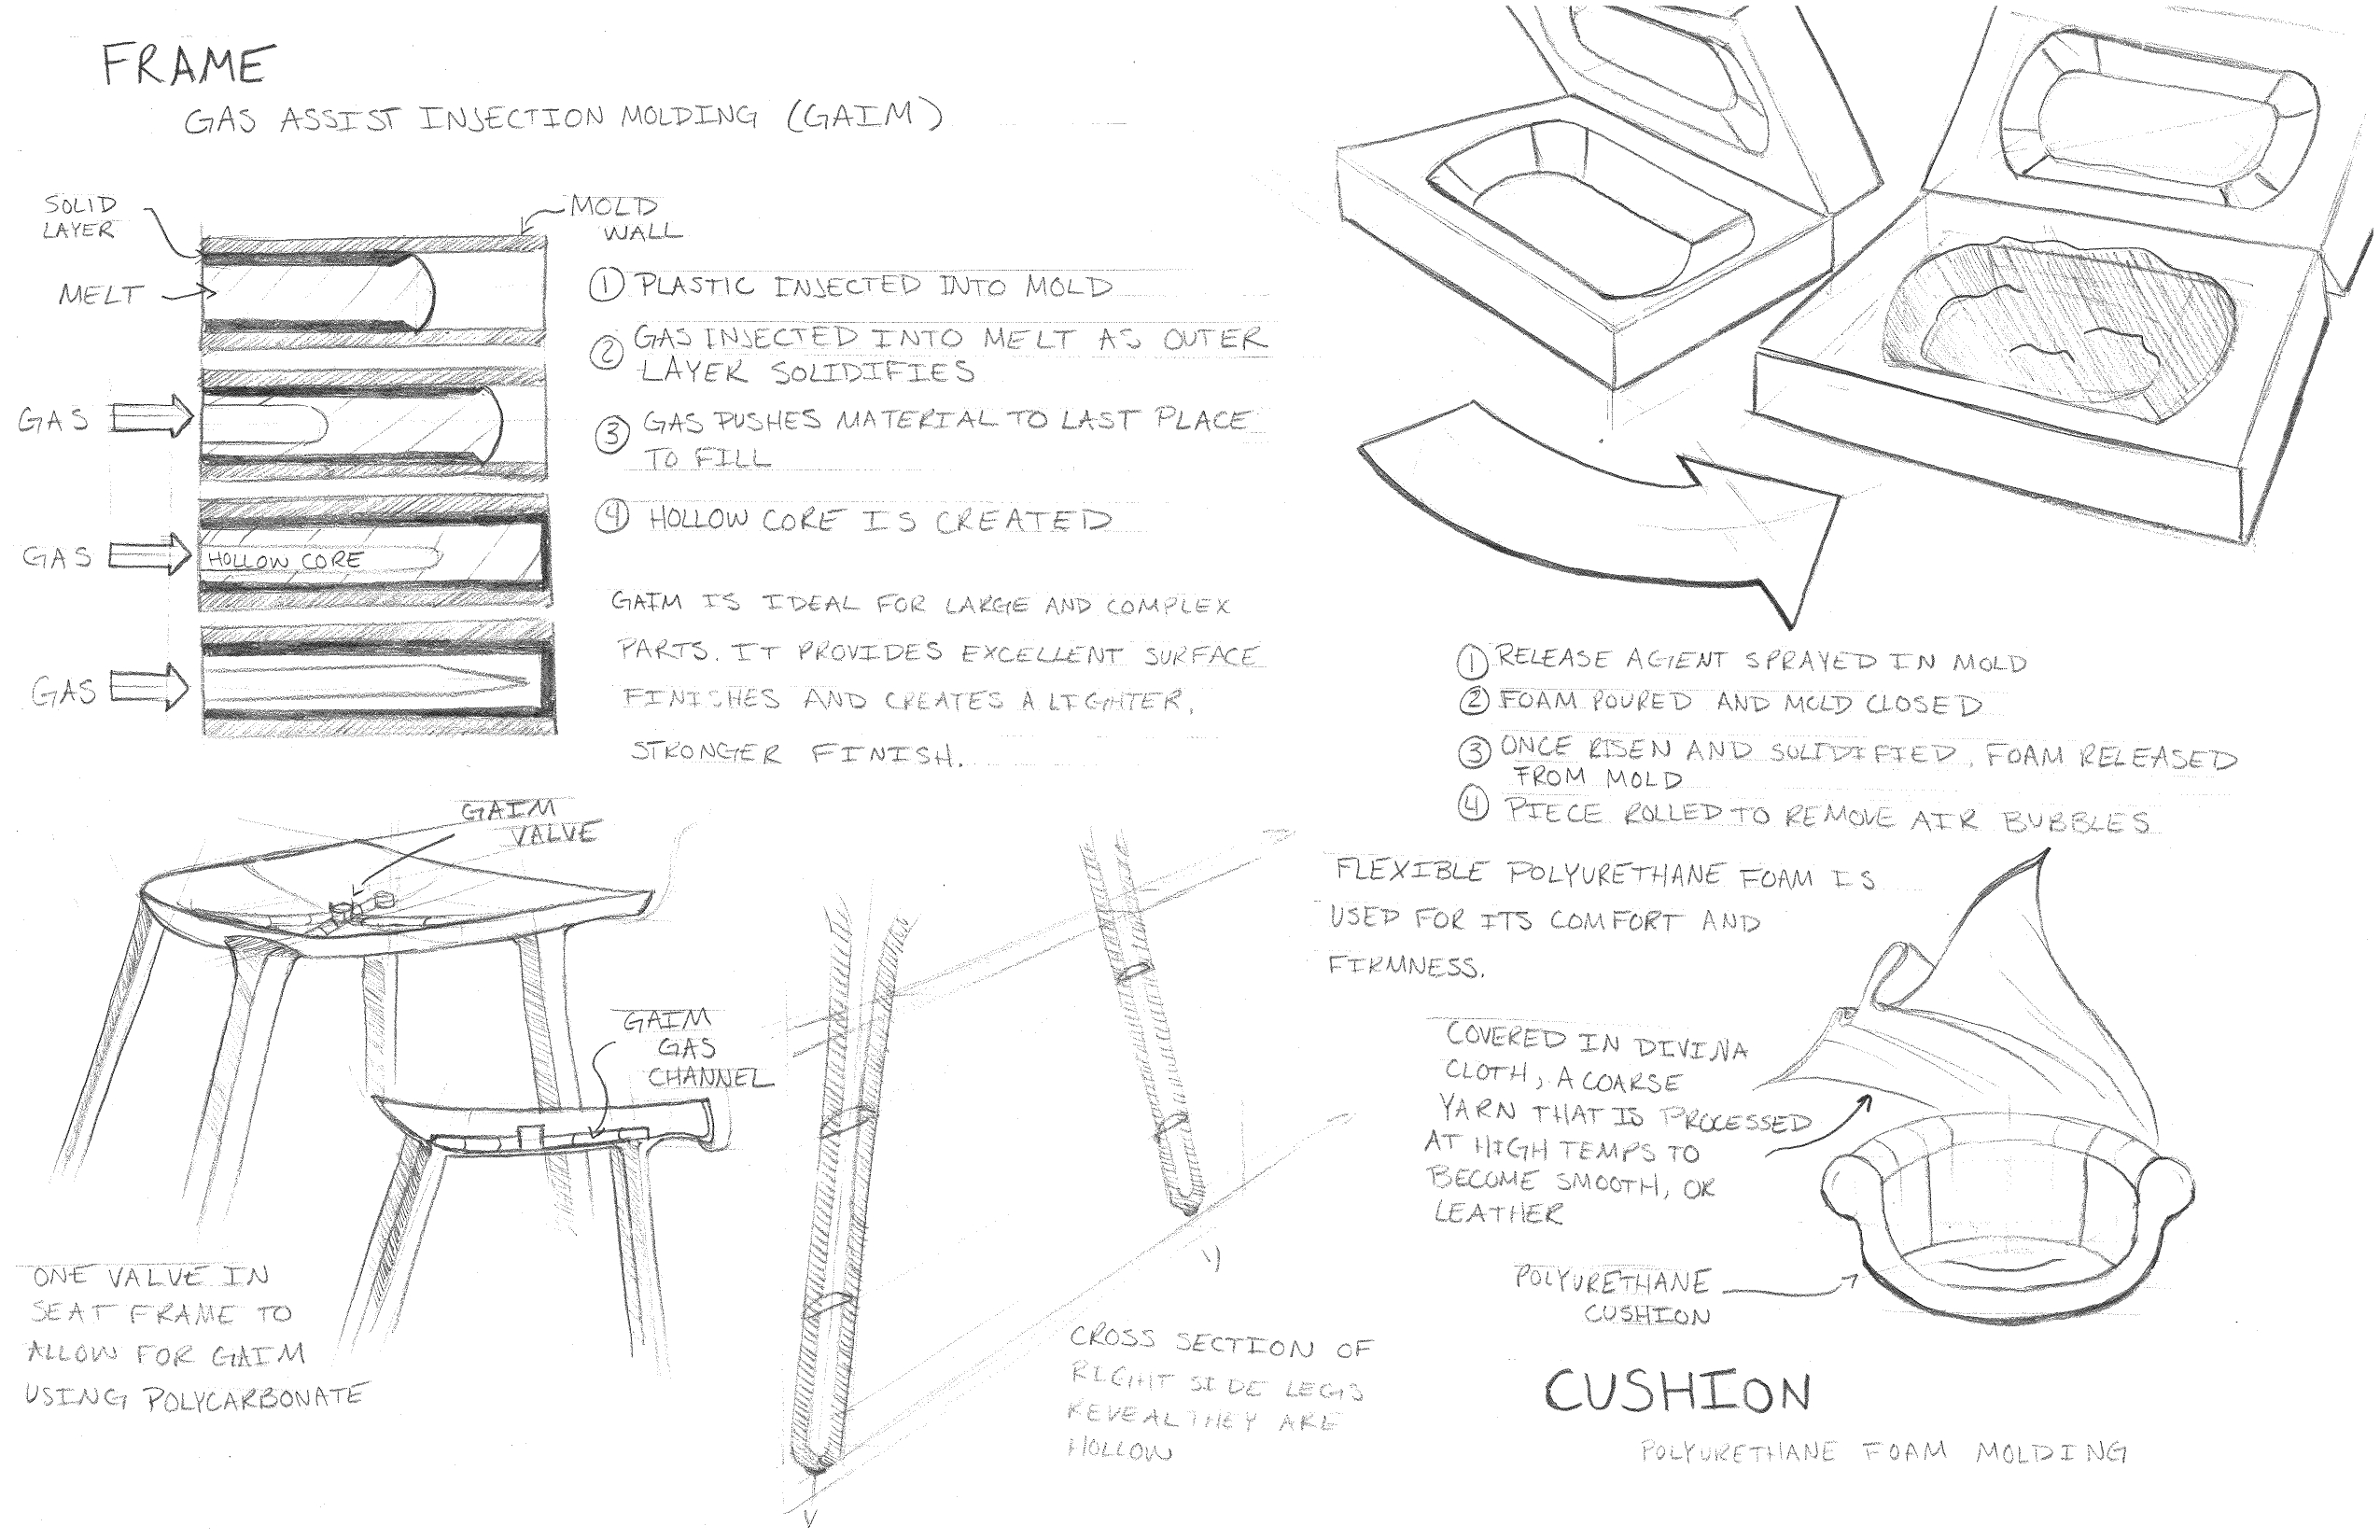 FRAME
GAS ASSIST INJECTION MOLDING (GAIM)
SOLID
LAYER
MOLD
WALL
MELT
GAS
GAS
HOLLOW CORE
GAS
① PLASTIC INJECTED INTO MOLD
② GAS INJECTED INTO MELT AS OUTER
LAYER SOLIDIFIES
③ GAS PUSHES MATERIAL TO LAST PLACE
TO FILL
④ HOLLOW CORE IS CREATED
GAIM IS IDEAL FOR LARGE AND COMPLEX
PARTS. IT PROVIDES EXCELLENT SURFACE
FINISHES AND CREATES A LIGHTER,
STRONGER FINISH.
GAIM
VALVE
GAIM
GAS
CHANNEL
ONE VALVE IN
SEAT FRAME TO
ALLOW FOR GAIM
USING POLYCARBONATE
CROSS SECTION OF
RIGHT SIDE LEGS
REVEAL THEY ARE
HOLLOW
① RELEASE AGENT SPRAYED IN MOLD
② FOAM POURED AND MOLD CLOSED
③ ONCE RISEN AND SOLIDIFIED, FOAM RELEASED
FROM MOLD
④ PIECE ROLLED TO REMOVE AIR BUBBLES
FLEXIBLE POLYURETHANE FOAM IS
USED FOR ITS COMFORT AND
FIRMNESS.
COVERED IN DIVINA
CLOTH, A COARSE
YARN THAT IS PROCESSED
AT HIGH TEMPS TO
BECOME SMOOTH, OR
LEATHER
POLYURETHANE
CUSHION
CUSHION
POLYURETHANE FOAM MOLDING